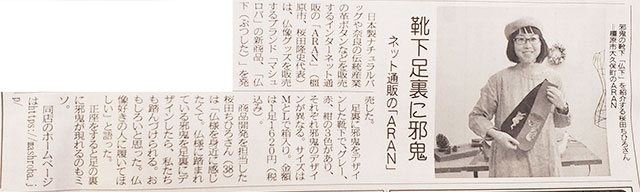 靴下足裏に邪鬼
ネット通販の「ARAN」
邪鬼の靴下「仏下」を紹介する桜田ちひろさん
＝橿原市大久保町のARAN
日本製ナチュラルバ
ッグや奈良の伝統産業
の革ボタンなどを販売
するインターネット通
販の「ARAN」（橿
原市、桜田隆史代表）
は、仏像グッズを販売
するブランド「マシュ
ロバ」の新商品、「仏
下（ぶつした）」を発
売した。
足裏に邪鬼をデザイ
ンした靴下で、グレー、
赤、紺の3色があり、
それぞれ邪鬼のデザイ
ンが異なる。サイズは
MとLで箱入り。金額
は1足1620円（税
込み）。
商品開発を担当した
桜田ちひろさん（38）
は「仏様を身近に感じ
たくて。仏様に踏まれ
ている邪鬼を足裏にデ
ザインしたら、私たち
も踏んづけられる。お
もしろいと思った。仏
像好きの人に履いてほ
しい」と語った。
正座をすると足の裏
に邪鬼が現れるのもミ
ソ。
同店のホームページ
はhttps://mashroba.j